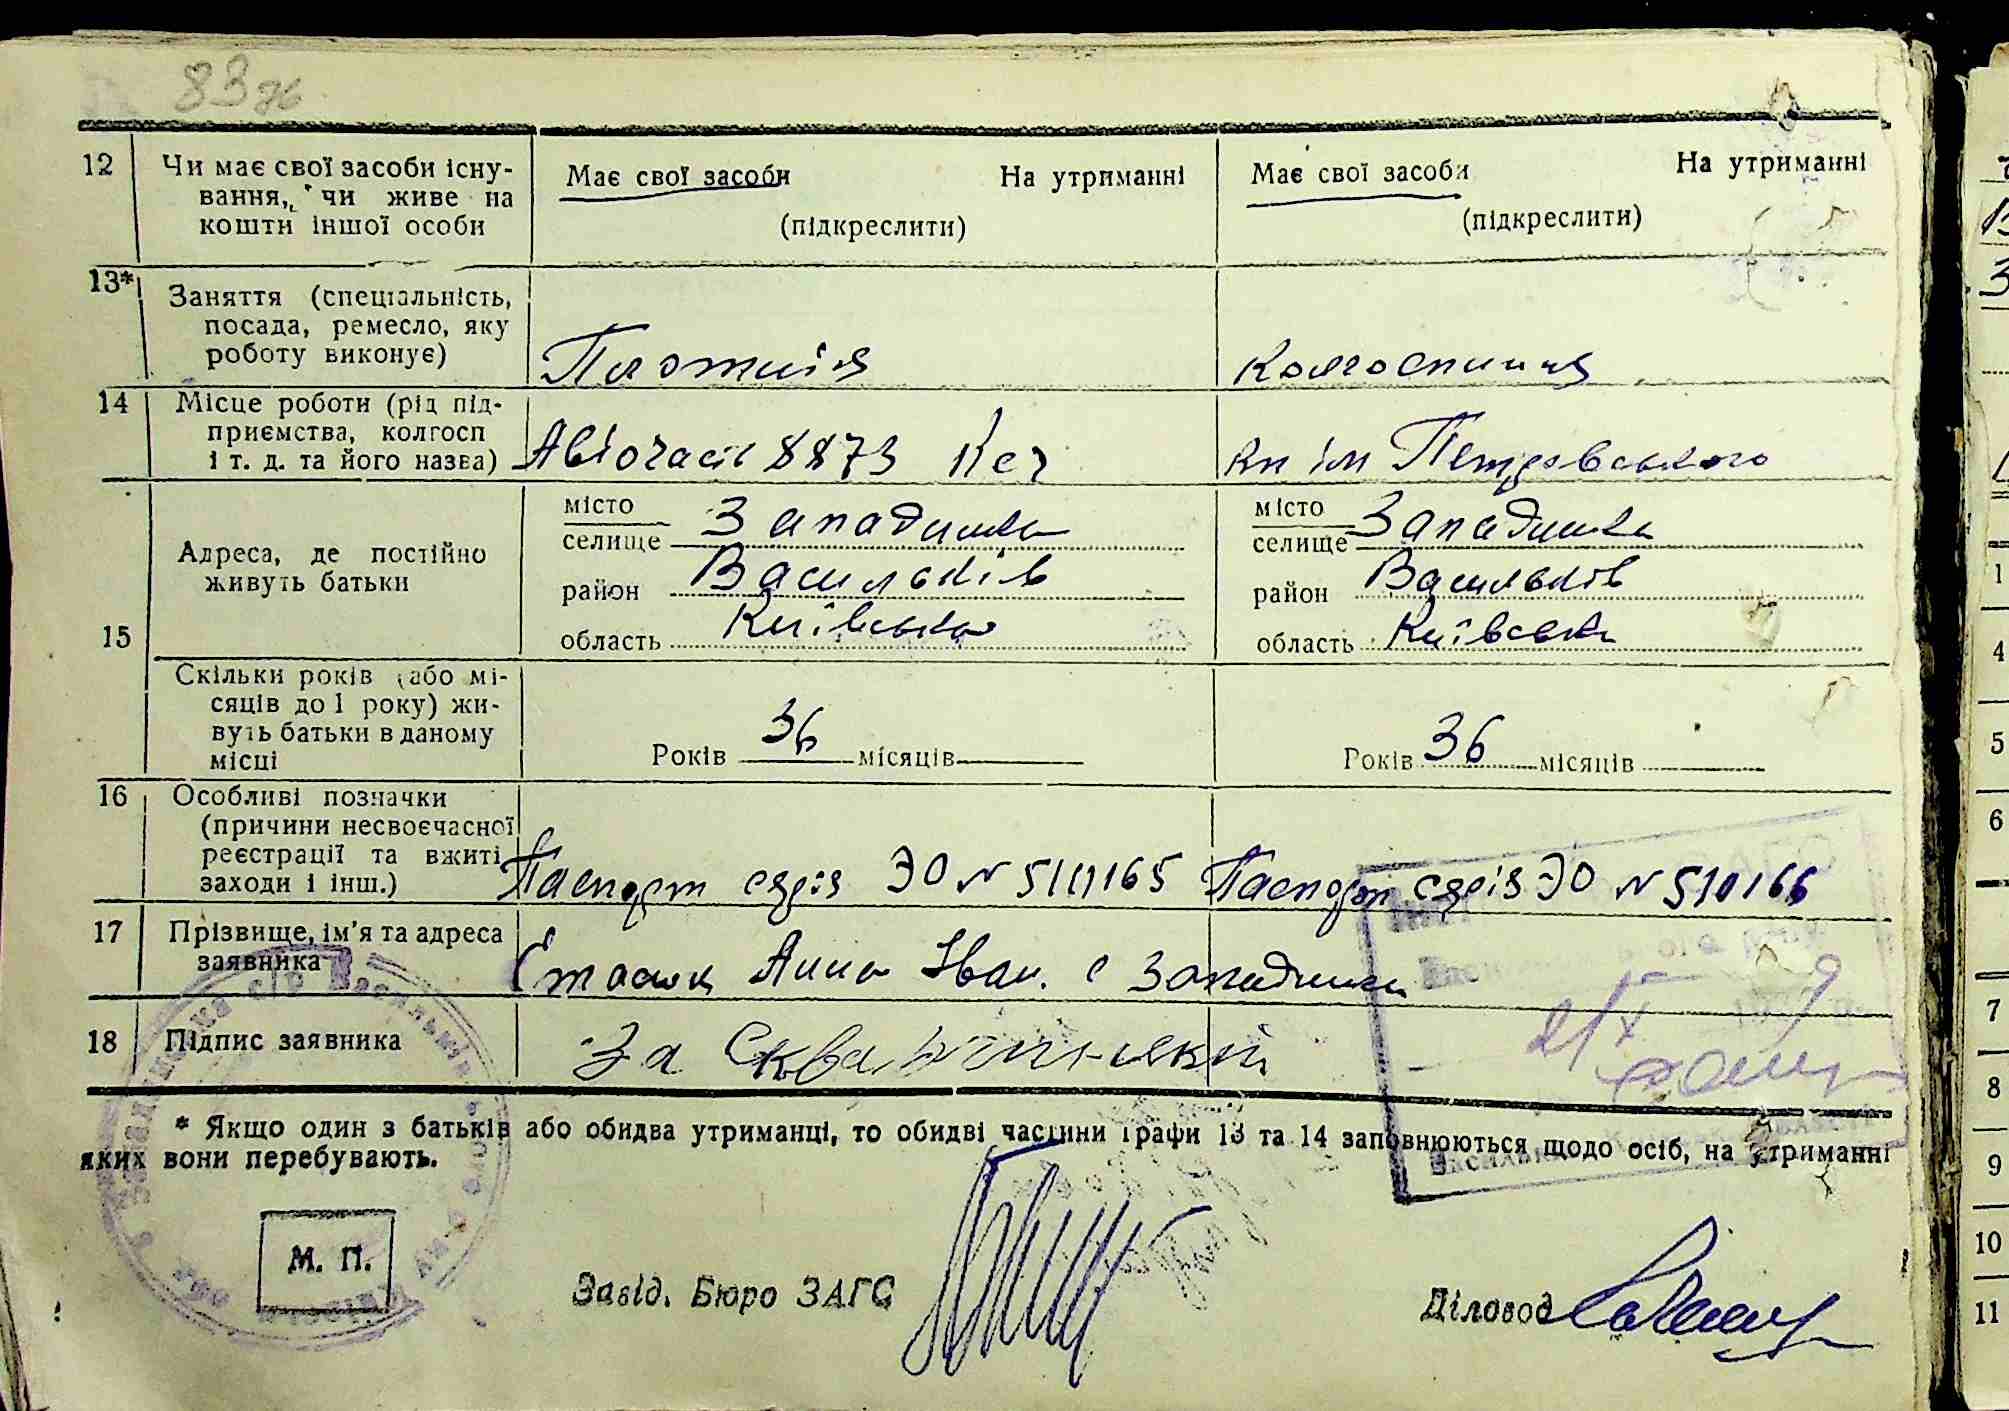 83 зв
12 Чи має свої засоби існу-
вання, чи живе на
кошти іншої особи
Має свої засоби На утриманні
(підкреслити)
Має свої засоби На утриманні
(підкреслити)
13* Заняття (спеціальність,
посада, ремесло, яку
роботу виконує)
Плотнік
Колгоспниця
14 Місце роботи (рід під-
приємства, колгосп
і т. д. та його назва)
Авіочасть 8873
кп ім Петровського
15 Адреса, де постійно
живуть батьки
місто
селище Западинка
район Васильків
область Київська
місто
селище Западинка
район Васильків
область Київська
Скільки років (або мі-
сяців до 1 року) жи-
вуть батьки в даному
місці
Років 36 місяців
Років 36 місяців
16 Особливі позначки
(причини несвоєчасної
реєстрації та вжиті
заходи і інш.)
Паспорт серія ЭО № 510165
Паспорт серія ЭО № 510166
17 Прізвище, ім'я та адреса
заявника
Стасюк Анна Іван. с Западинка
18 Підпис заявника
За
* Якщо один з батьків або обидва утриманці, то обидві частини графи 13 та 14 заповнюються щодо осіб, на утриманні
яких вони перебувають.
М. П.
Завід. Бюро ЗАГС
Діловод
1
4
5
6
7
8
9
10
11